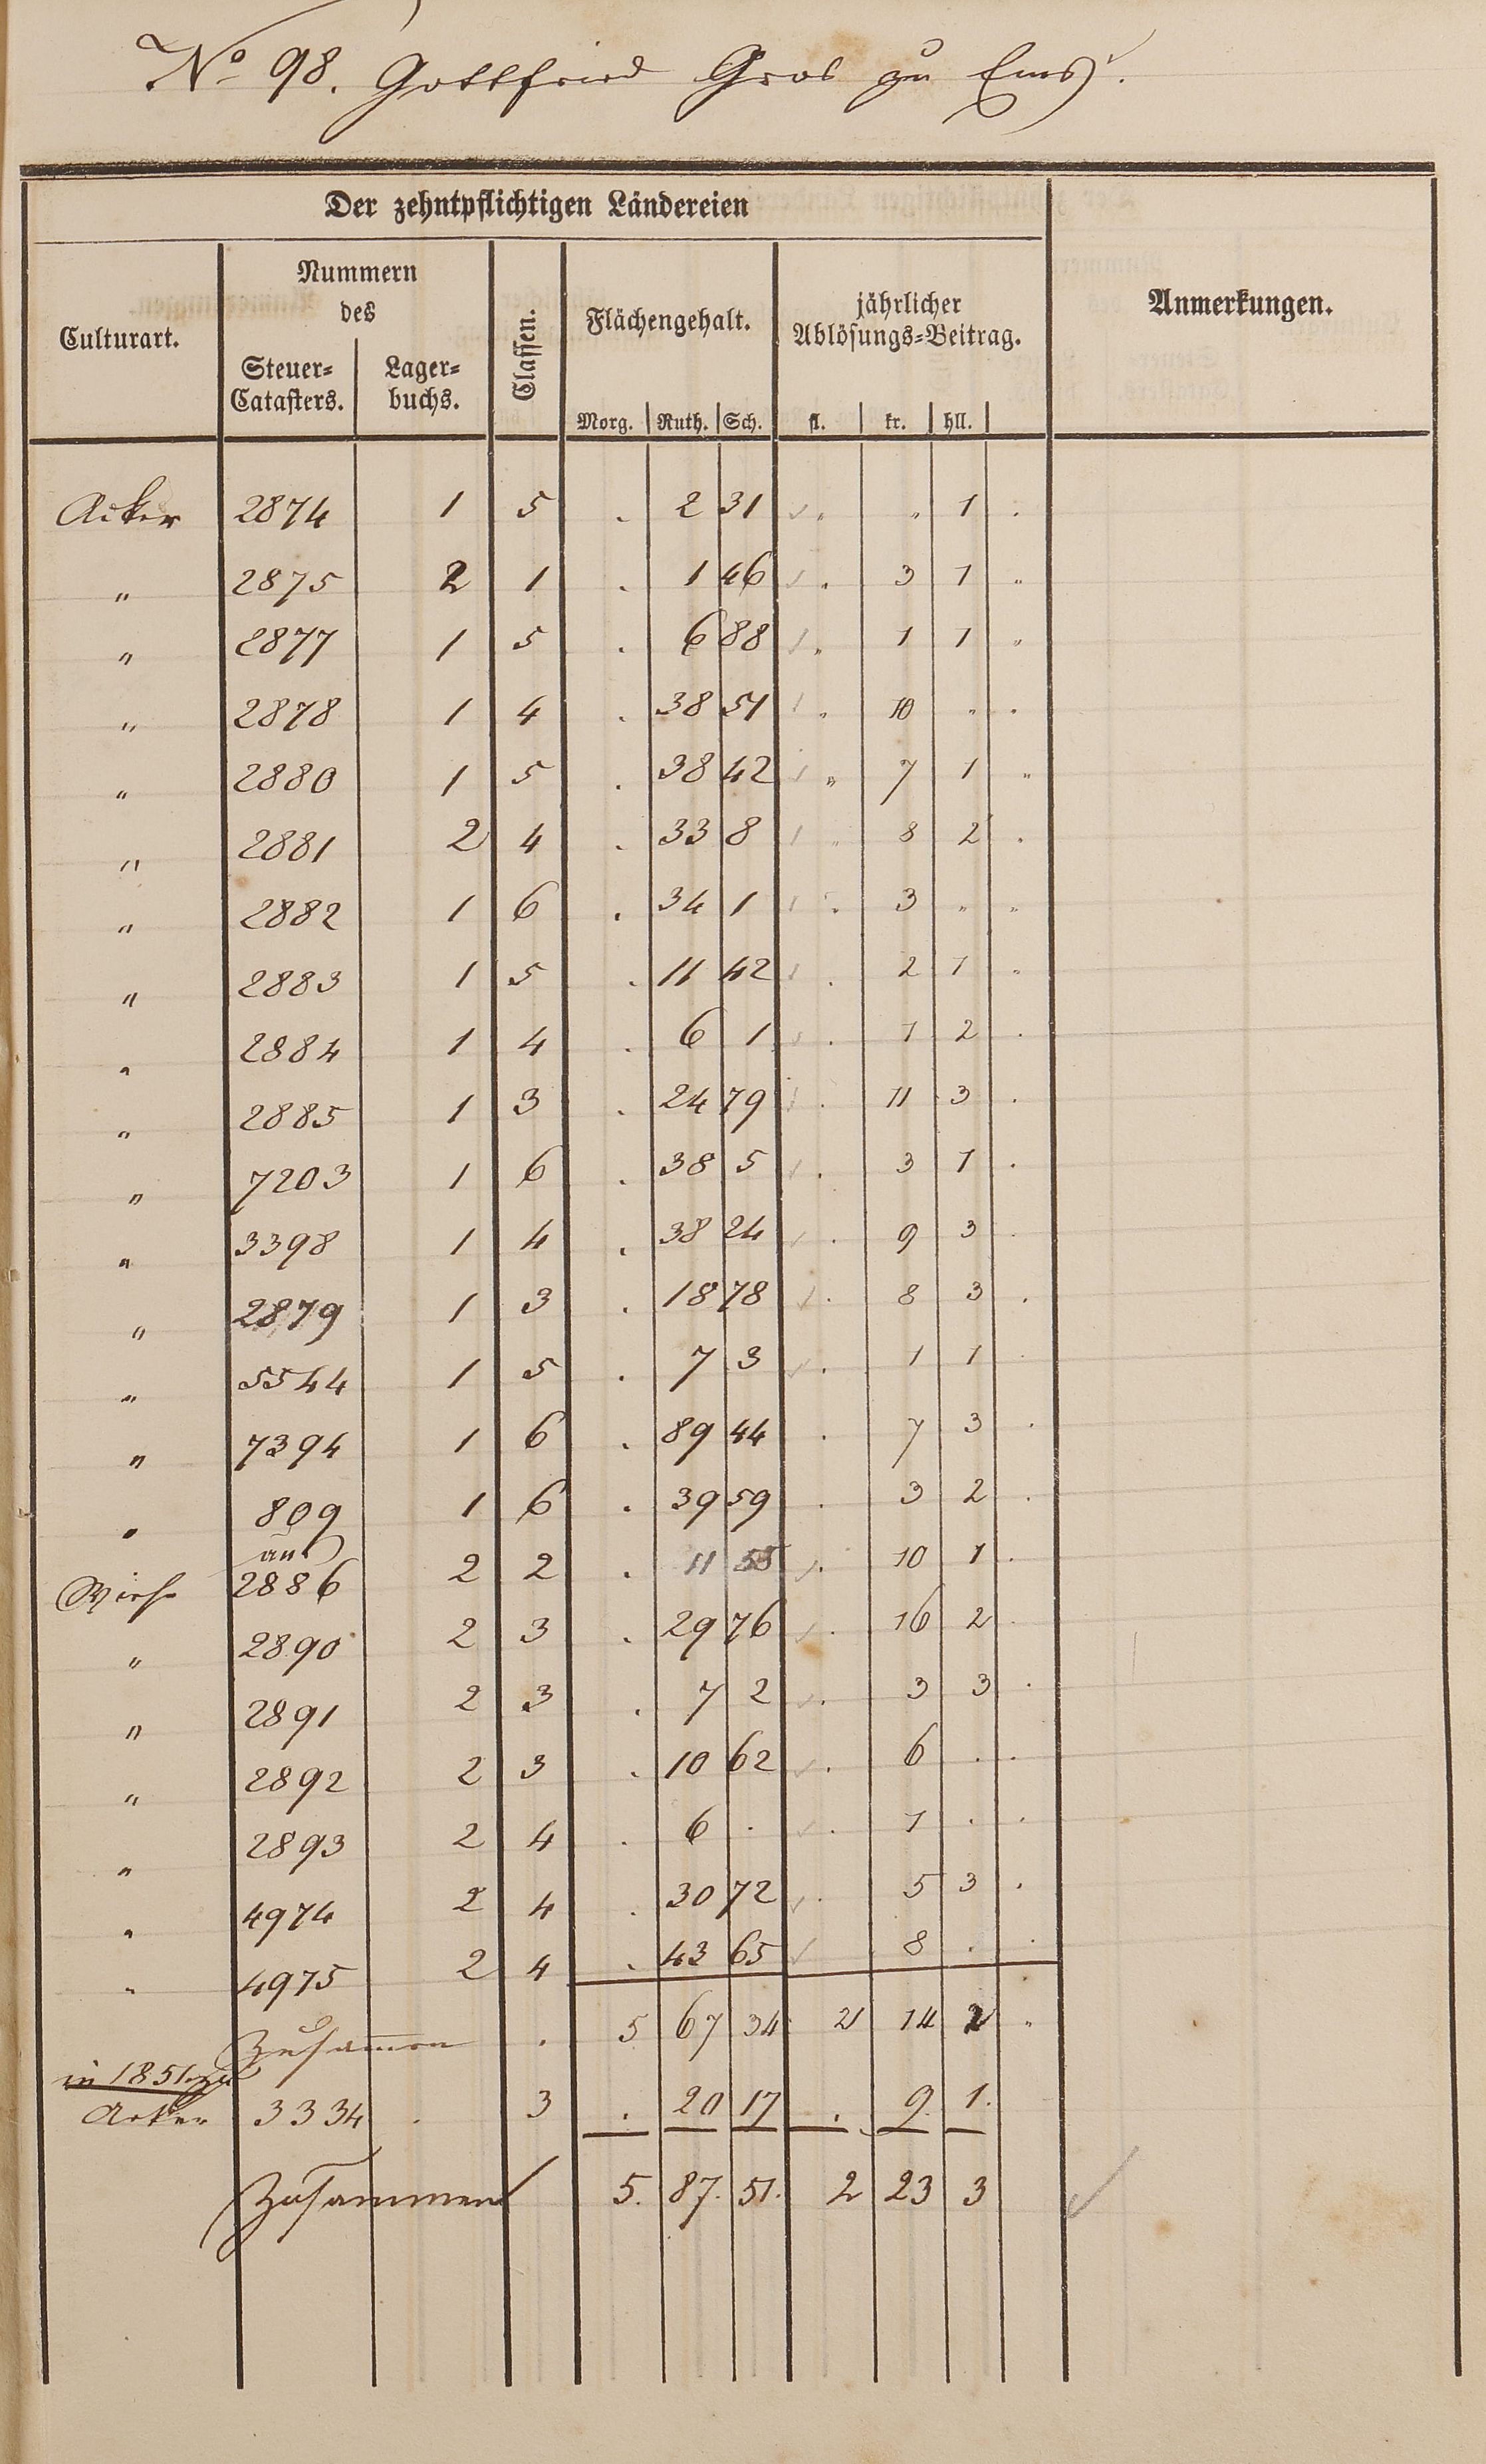 No 98. Gottfried Gros zu Ems.
Der zehntpflichtigen Ländereien
Culturart. Nummern des Steuer=Catasters. Lager=buchs. Classen. Flächengehalt. jährlicher Ablösungs=Beitrag. Anmerkungen.
Morg. Ruth. Sch. fl. kr. hll.
Acker 2874 1 5 . 2 31 " " 1 .
" 2875 2 1 . 1 46 . 3 1 "
" 2877 1 5 . 6 88 " 1 1 "
" 2878 1 4 . 38 51 " 10 " .
" 2880 1 5 . 38 42 " 7 1 "
" 2881 2 4 . 33 8 " 8 2 .
" 2882 1 6 . 34 1 . 3 " "
" 2883 1 5 . 11 42 . 2 1 "
" 2884 1 4 . 6 1 . 1 2 .
" 2885 1 3 . 24 79 . 11 3 .
" 7203 1 6 . 38 5 . 3 1 .
" 3398 1 4 . 38 24 . 9 3 .
" 2879 1 3 . 18 78 . 8 3 .
" 5544 1 5 . 7 3 . 1 1 .
" 7394 1 6 . 89 44 . 7 3 .
" 809 1 6 . 39 59 . 3 2 .
aus
Wiese 2886 2 2 . 11 55 . 10 1 .
" 2890 2 3 . 29 76 . 16 2 .
" 2891 2 3 . 7 2 . 3 3 .
" 2892 2 3 . 10 62 . 6 . .
" 2893 2 4 . 6 . . 1 . .
" 4974 2 4 . 30 72 . 5 3 .
" 4975 2 4 . 43 65 8 . .
Zusammen . 5 67 34 2 14 2 "
in 1851 zu
Acker 3334 . 3 . 20 17 . 9. 1.
Zusammen 5. 87. 51. 2 23 3